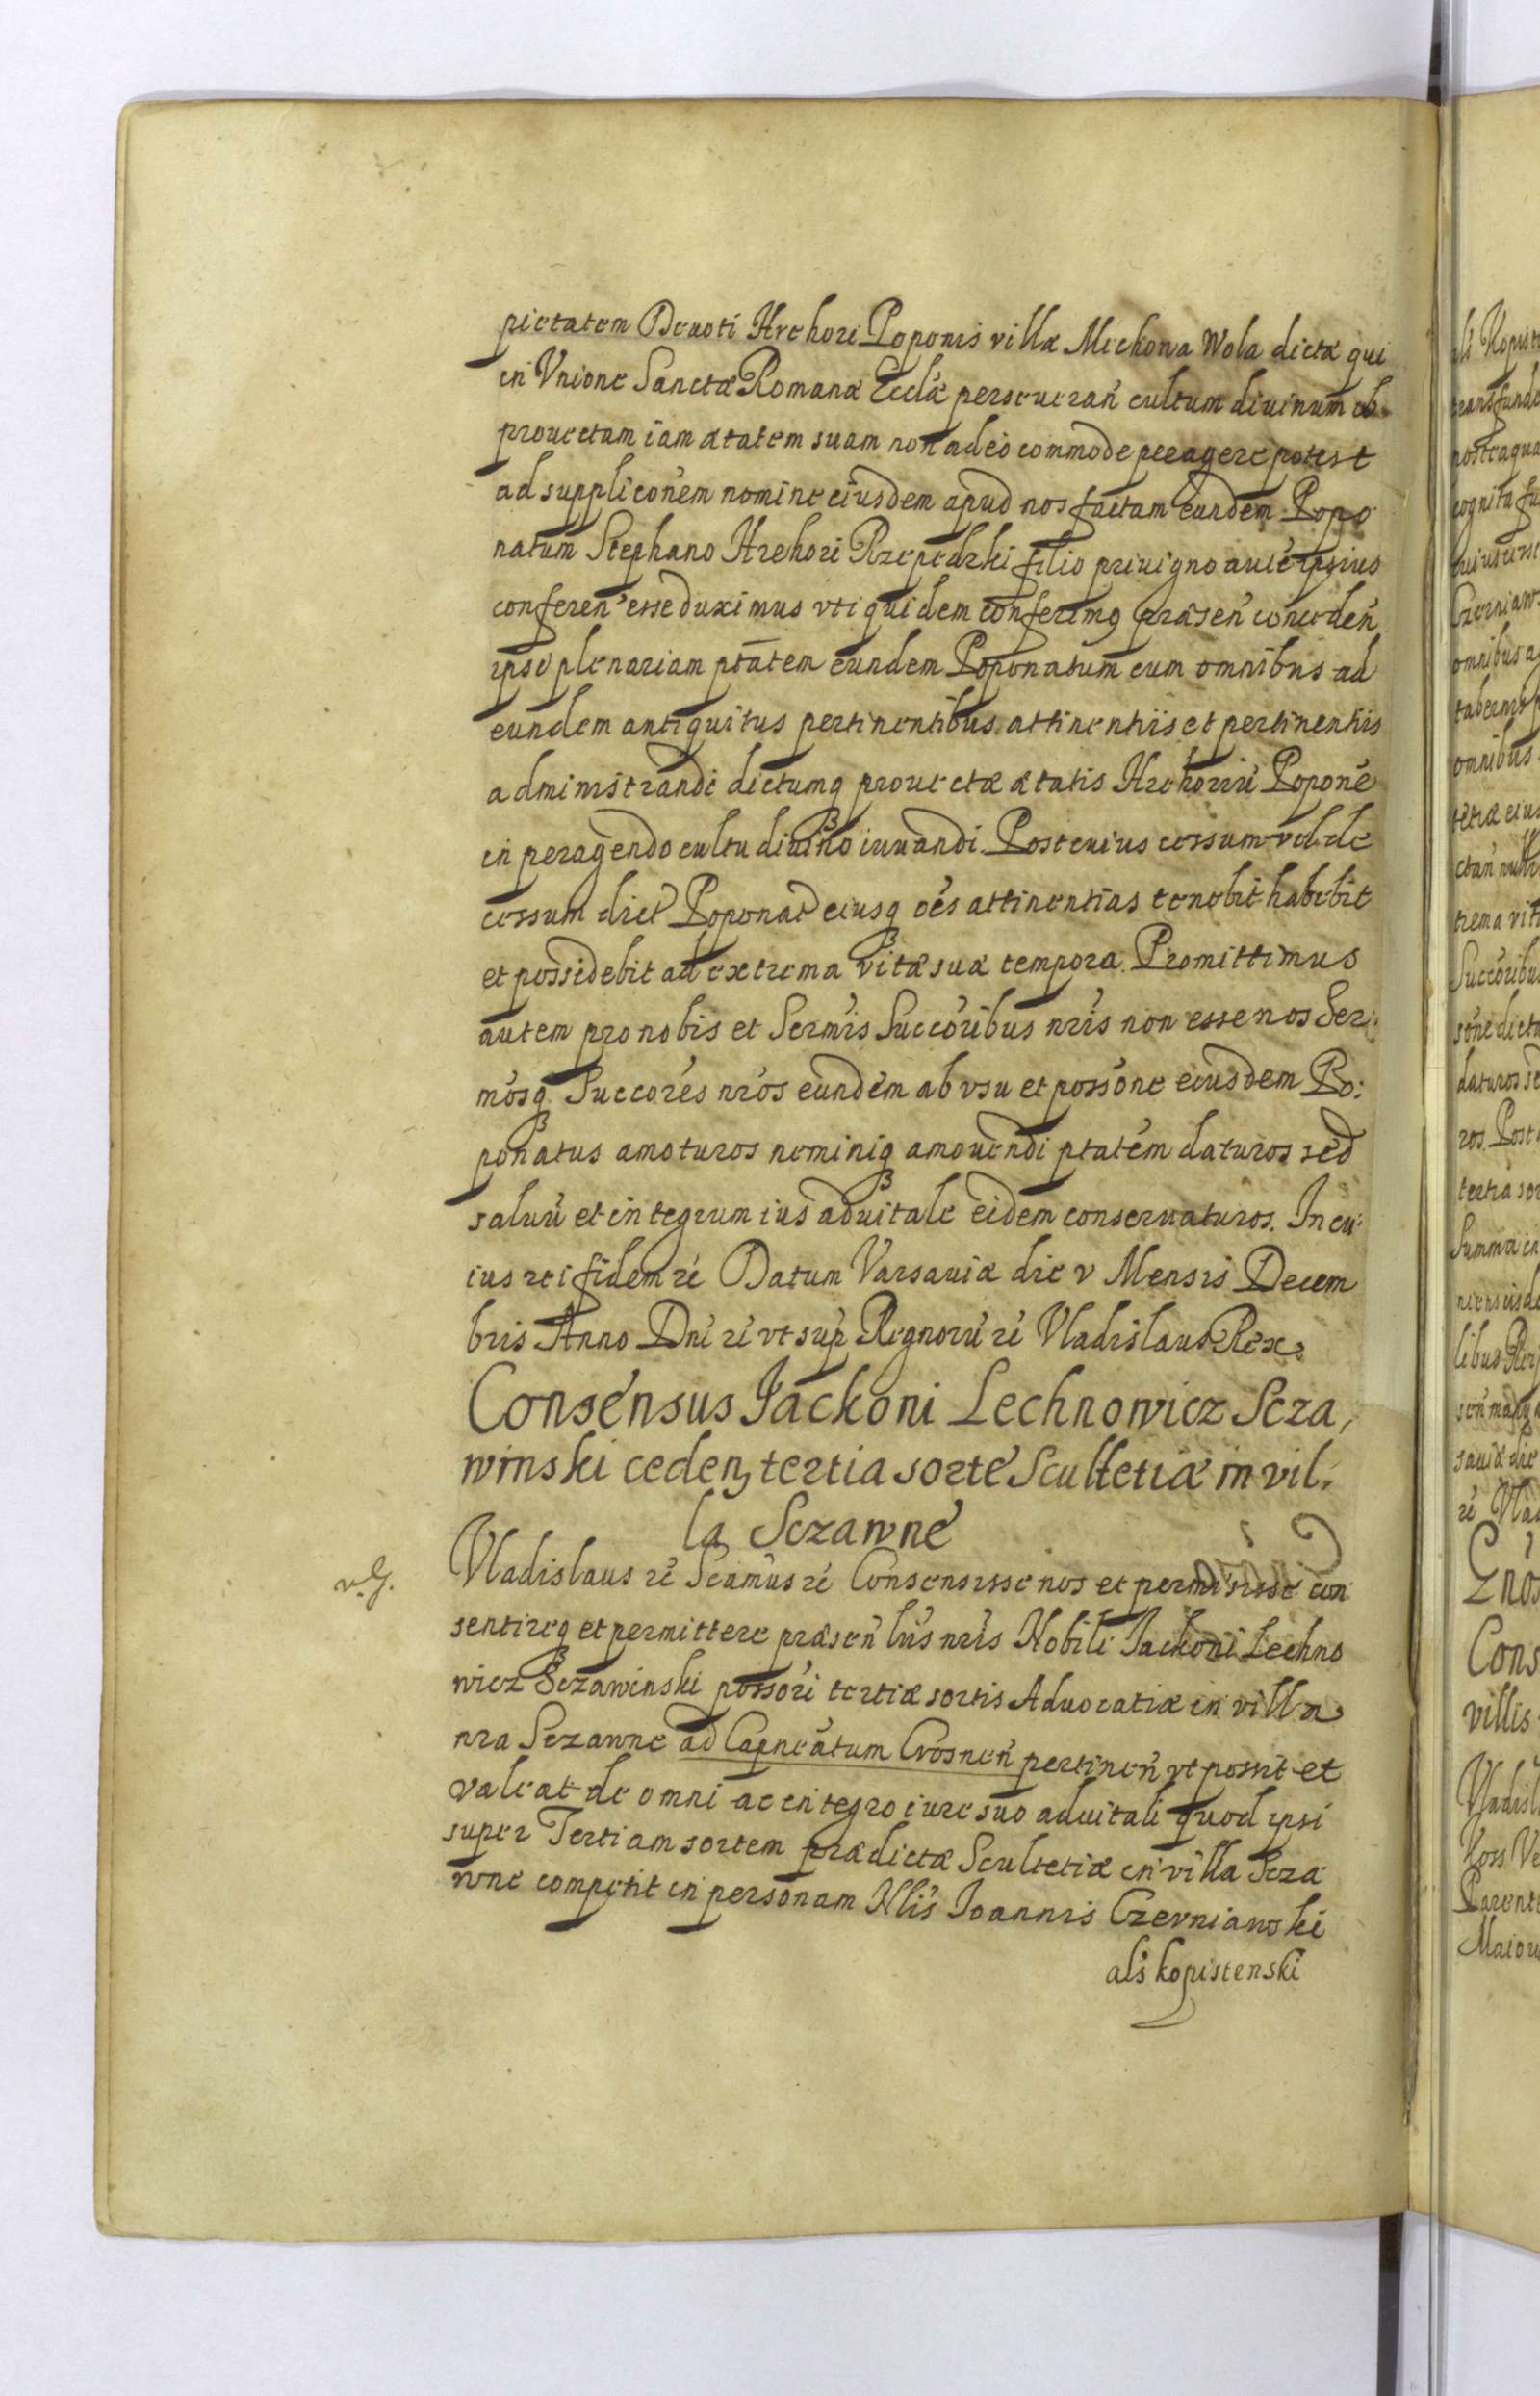 pietatem Deuoti Hrehori Poponis villæ Michowa Wola dictæ qui
in Vnione Sanctæ Romanæ Ecclæ perseueran cultum diuinum ob
prouectam iam ætatem suam non adeo commode peragere potest
ad suppliconem nomine eiusdem apud nos factam eundem Popo
natum Stephano Hrehori Rzepedzki filio priuigno aut ipsius
conferen esse duximus vti quidem conferimq præsen conceden
ipsi plenariam ptatem eundem Poponatum cum omnibus ad
eundem antiquitus pertinentibus attinentiis et pertinentiis
administrandi dictumq prouectæ ætatis Hrehoriu Popone
in peragendo cultu diuino iuuandi. Post cuius cessum vel de
cessum dict Poponat eiusq oes attinentias tenebit habebit
et possidebit ad extrema vitæ suæ tempora. Promittimus
autem pro nobis et Sermis Succoribus nris non esse nos Ser:
mosq Succores nros eundem ab vsu et possone eiusdem Po:
ponatus amoturos neminiq amouendi ptatem daturos sed
saluu et integrum ius aduitale eidem conseruaturos. In cu:
ius rei fidem zc Datum Varsauiæ die v Mensis Decem
bris Anno Dni zc vt sup Regnoru zc Vladislaus Rex.
Consensus Jackoni Lechnowicz Scza,
winski ceden tertia sorte Scultetiæ in vil:
la Sczawne
v. G. Vladislaus zc Scamus zc Consensisse nos et permisisse con
sentireq et permittere præsen lris nris Nobili Jackoni Lechno
wicz Sczawinski possori tertiæ sortis Aduocatiæ in villa
nra Sczawne ad Capneatum Crosnen pertinen vt possit et
valeat de omni ac integro iure suo aduitali quod ipsi
super Tertiam sortem prædictæ Scultetiæ in villa Scza
wne competit in personam Nlis Joannis Czerniawski
als kopistenski